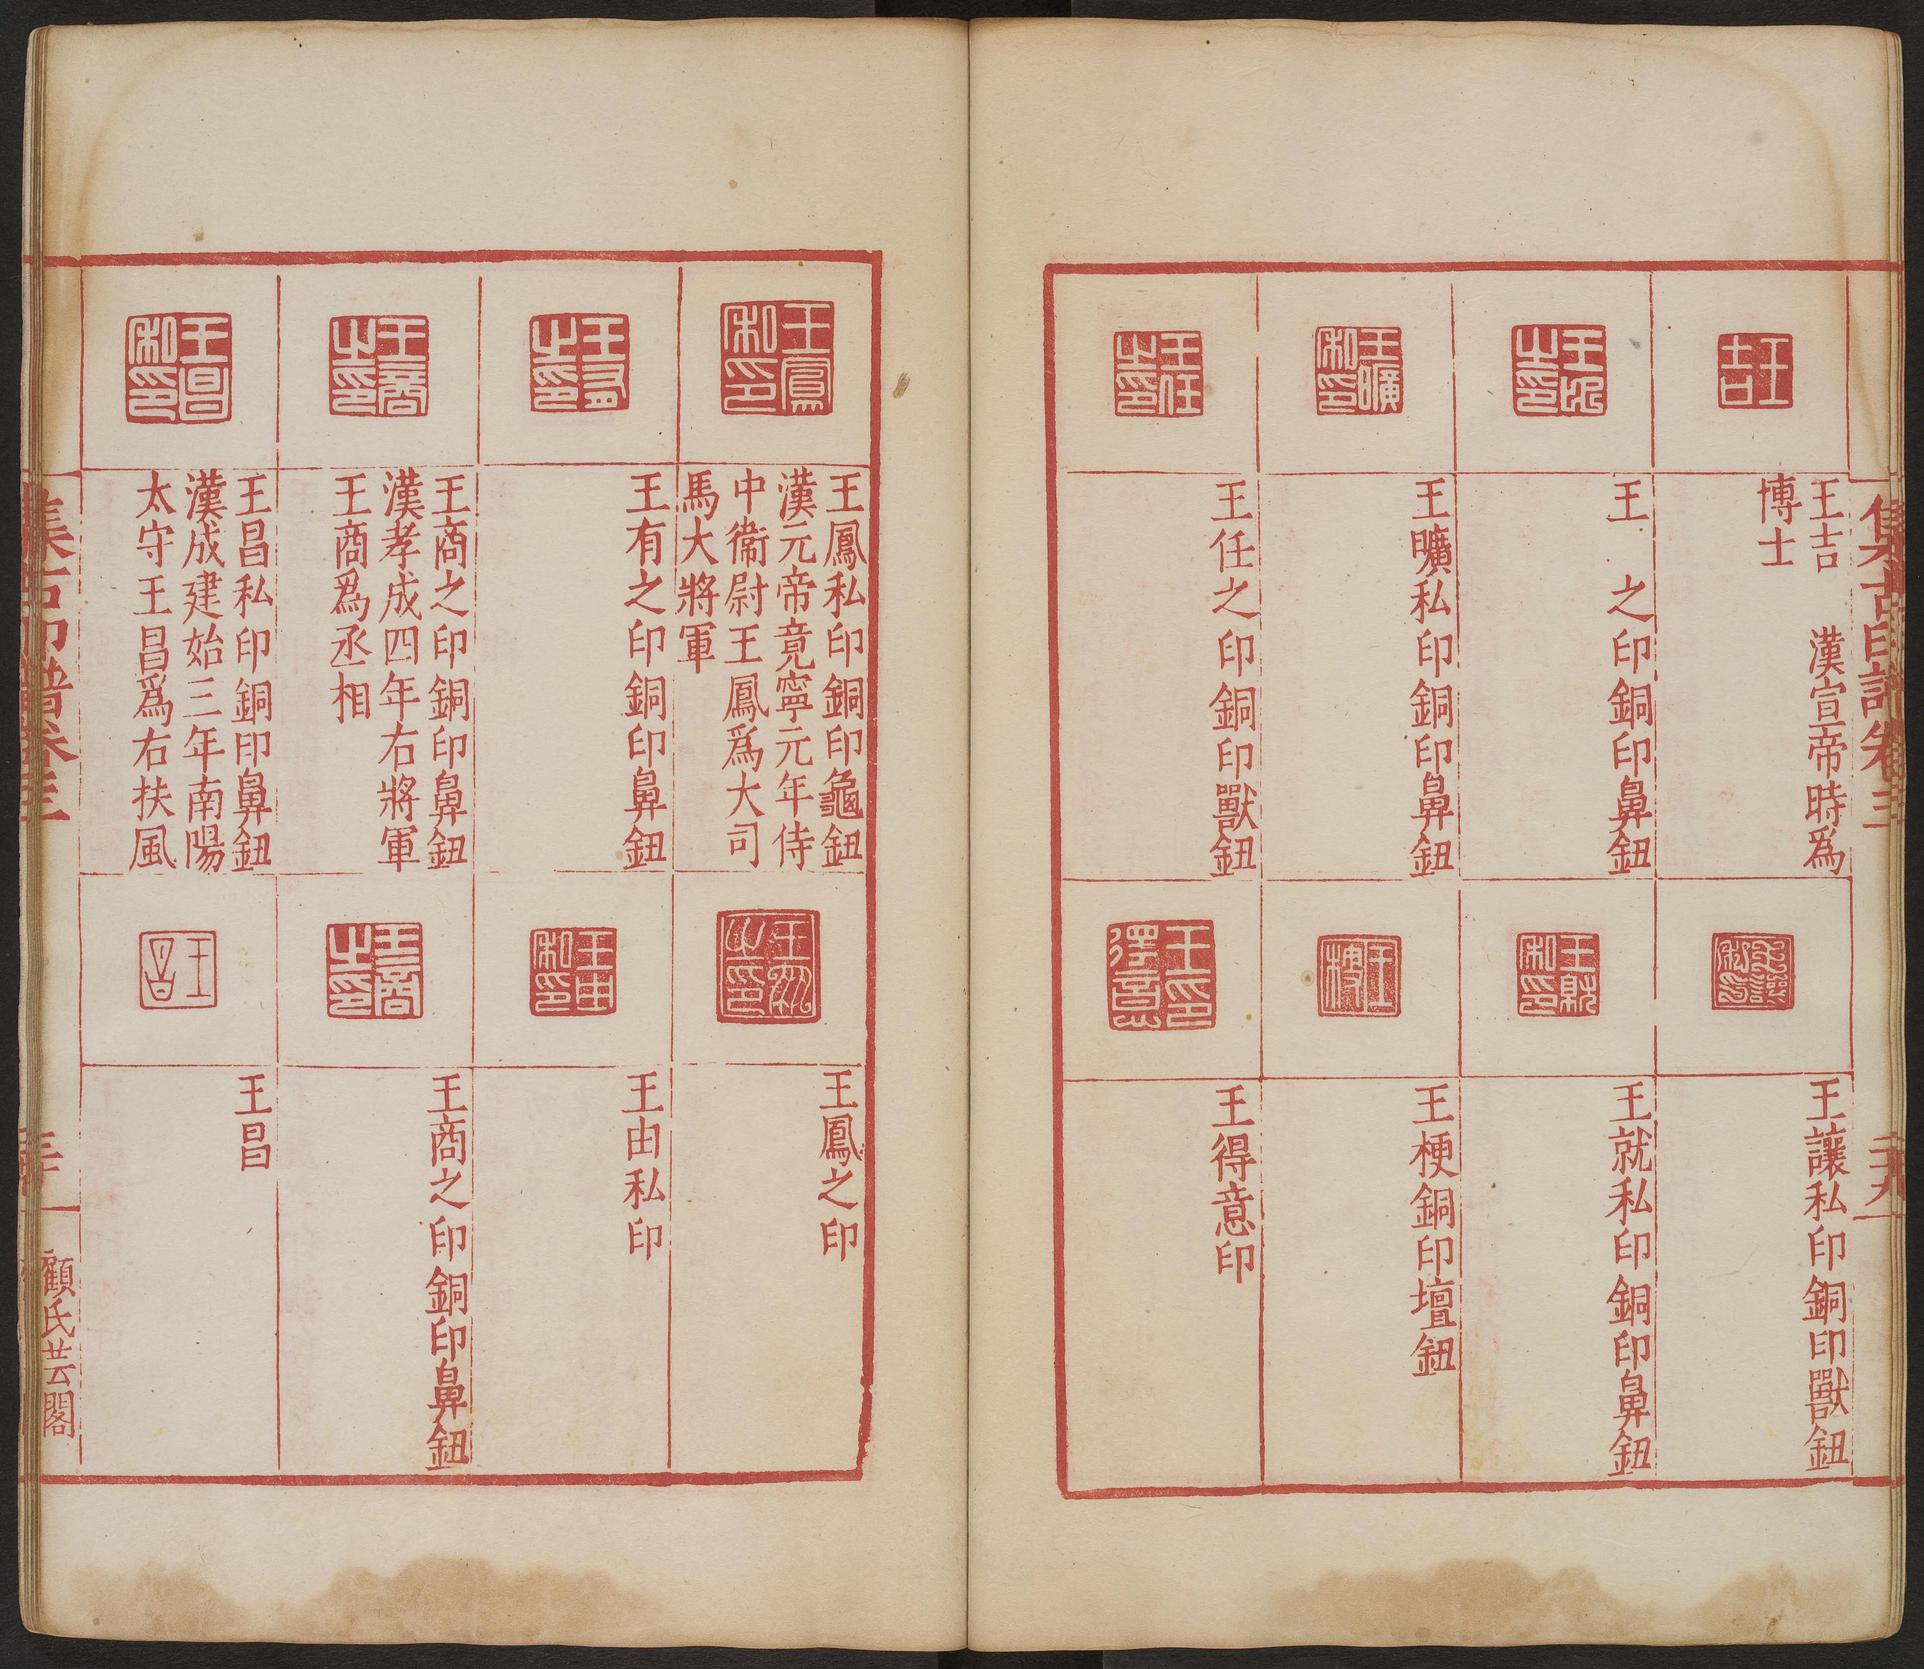 集古印譜卷三
二十九
王吉 漢宣帝時爲
博士
王 之印銅印鼻鈕
王曠私印銅印鼻鈕
王任之印銅印獸鈕
王讓私印銅印獸鈕
王就私印銅印鼻鈕
王梗銅印壇鈕
王得意印
王鳳私印銅印龜鈕
漢元帝竟寧元年侍
中衞尉王鳳爲大司
馬大將軍
王有之印銅印鼻鈕
王商之印銅印鼻鈕
漢孝成四年右將軍
王商爲丞相
王昌私印銅印鼻鈕
漢成建始三年南陽
太守王昌爲右扶風
王鳳之印
王由私印
王商之印銅印鼻鈕
王昌
集古印譜卷三
三十
顧氏芸閣